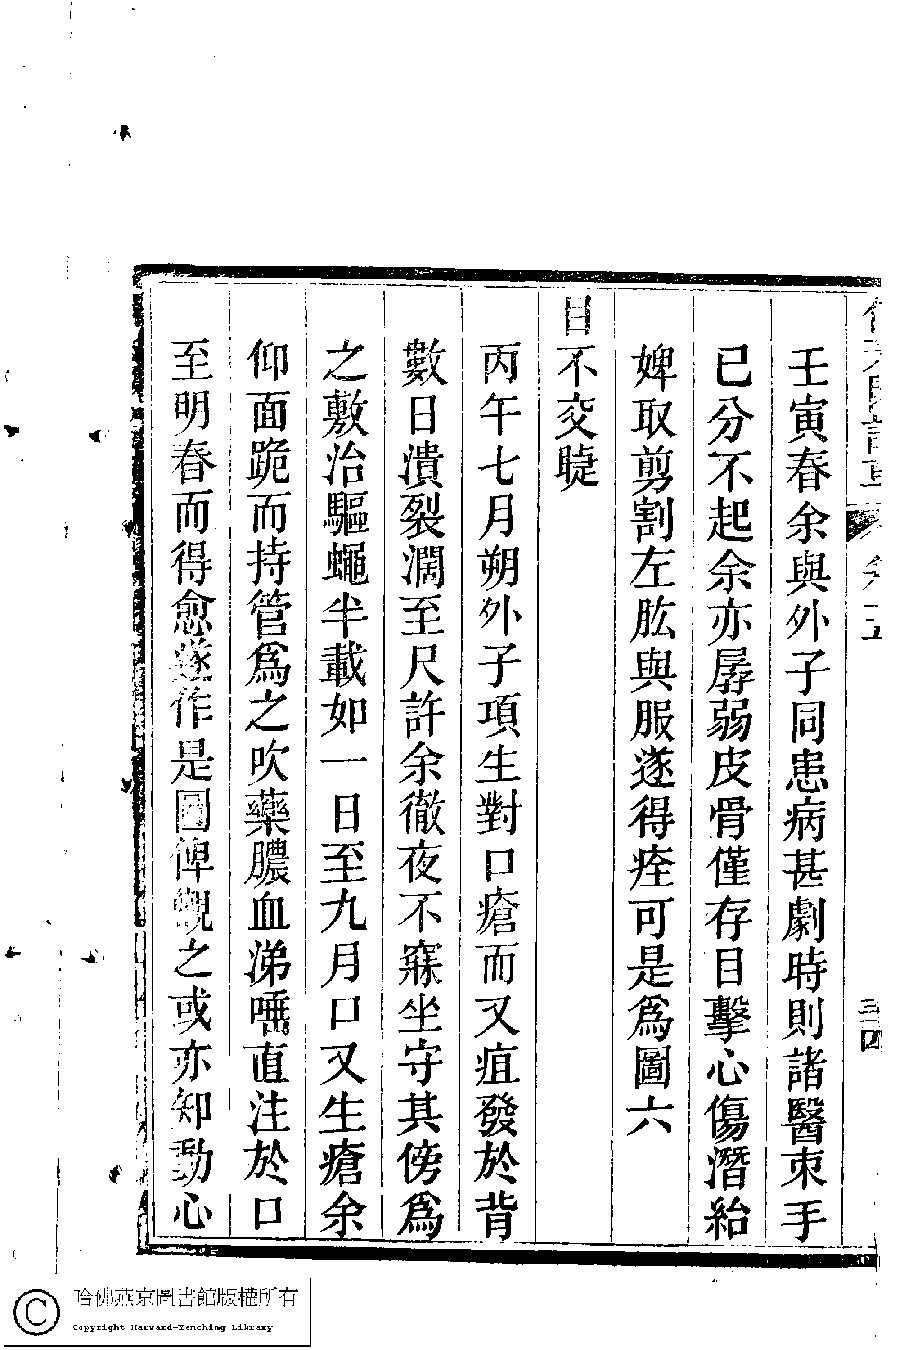 壬寅春余與外子同患病甚劇時則諸醫束手
已分不起余亦孱弱皮骨僅存目擊心傷潛紿
婢取剪割左肱與服遂得痊可是爲圖六
目不交睫
丙午七月朔外子項生對口瘡而又疽發於背
數日潰裂濶至尺許余徹夜不寐坐守其傍爲
之敷治驅蠅半載如一日至九月口又生瘡余
仰面跪而持管爲之吹藥膿血涕唾直注於口
至明春而得愈遂作是圖俾觀之或亦知動心
三四
哈佛燕京圖書館版權所有
Copyright Harvard-Yenching Library